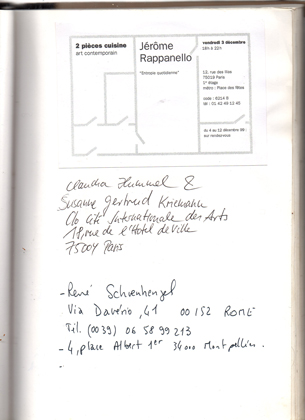 2 pièces cuisine
art contemporain
Jérôme
Rappanello
"Entropie quotidienne"
vendredi 3 décembre
18h à 22h
75019 Paris
5 étage
métro : Place des fêtes
code : 6214 B
tél : 01 42 49 12 40
du 4 au 12 décembre 99 :
sur rendez-vous
Claudia Hummel &
Susanne Gertrud Kriemann
c/o Cité Internationale des Arts
18, rue de l'Hotel de Ville
75004 Paris
- René Schoenhengel
Via Davério, 41 00152 ROME
Tél. (0039) 06 58 99 213
- 4, place Albert 1er 34000 Montpellier.
-